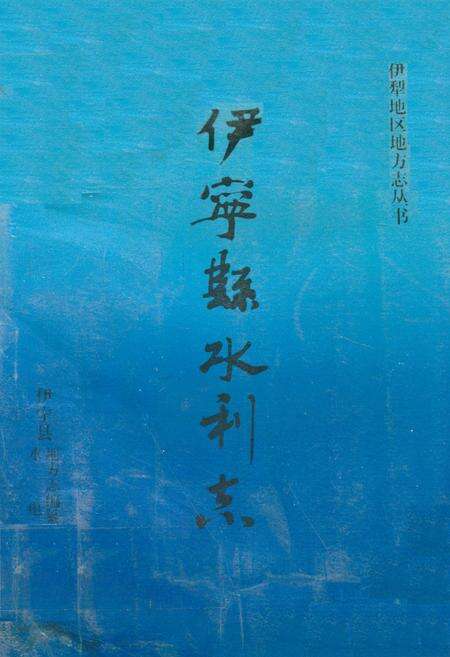 伊犁地区地方志丛书
伊寧縣水利志
伊宁县
地方志编纂
水 电